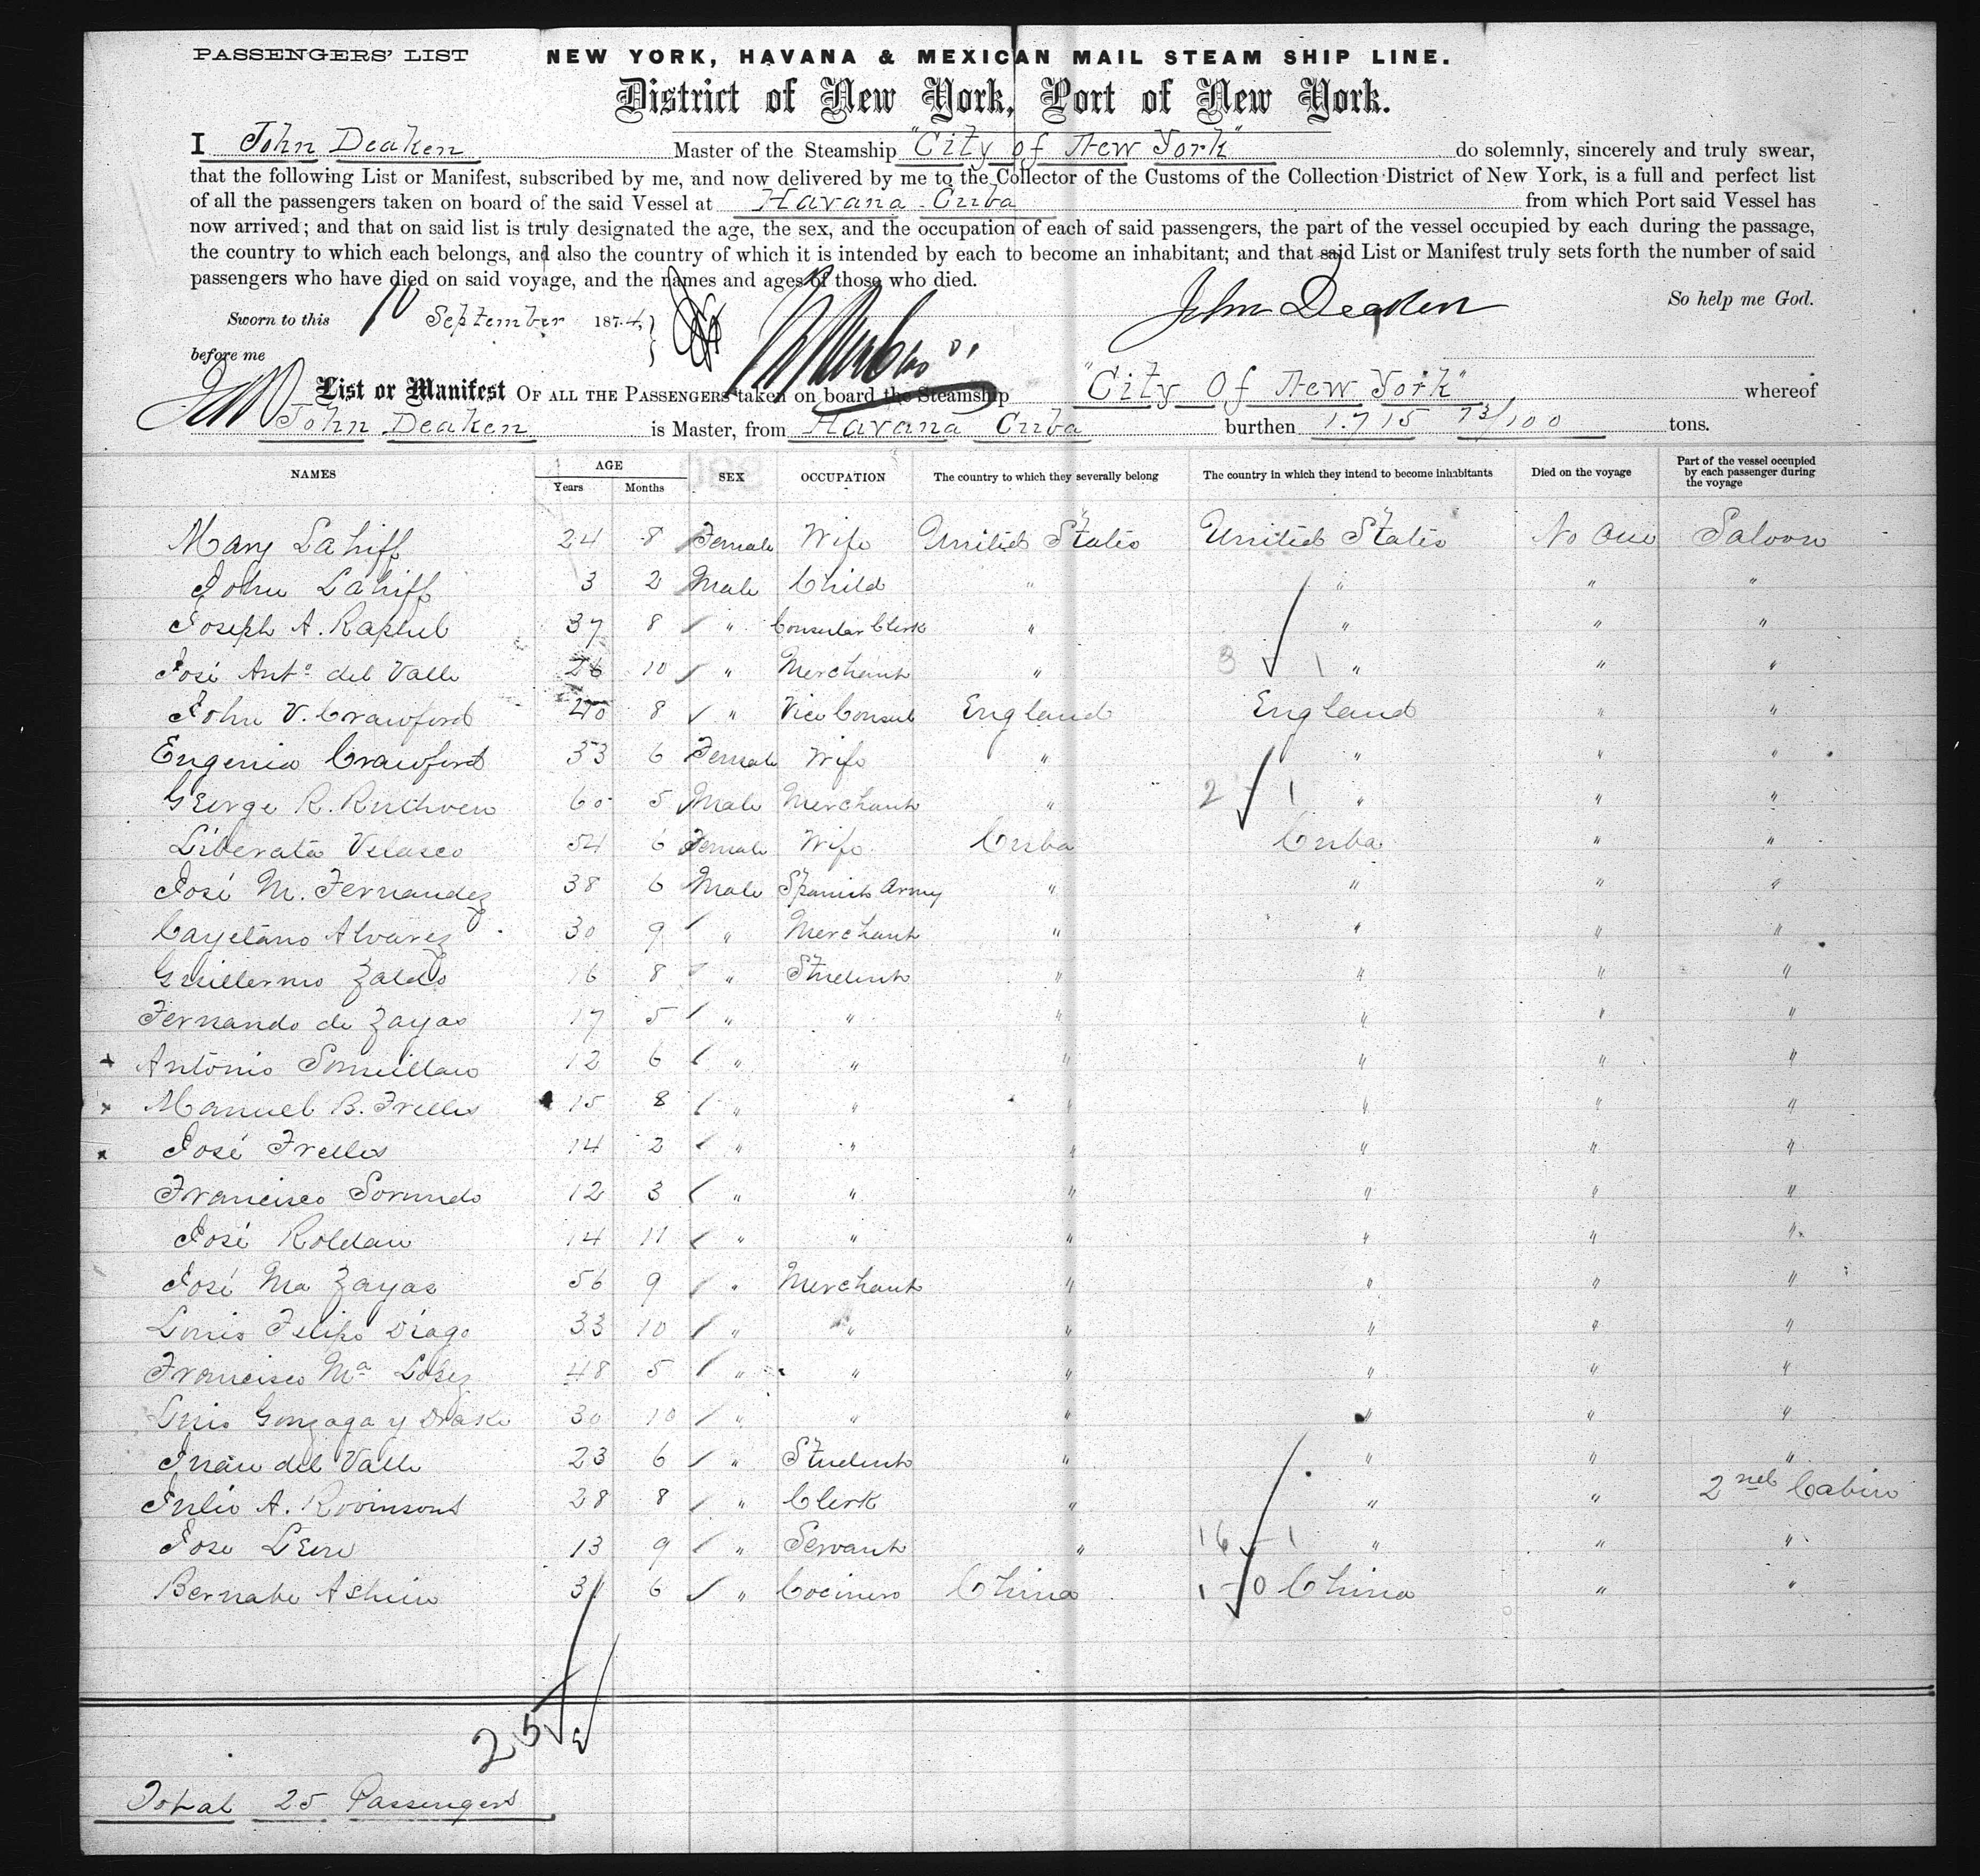 PASSENGERS' LIST NEW YORK, HAVANA & MEXICAN MAIL STEAM SHIP LINE.
District of New York, Port of New York.
I John Deaken Master of the Steamship "City of New York" do solemnly, sincerely and truly swear,
that the following List or Manifest, subscribed by me, and now delivered by me to the Collector of the Customs of the Collection District of New York, is a full and perfect list
of all the passengers taken on board of the said Vessel at Havana Cuba from which Port said Vessel has
now arrived; and that on said list is truly designated the age, the sex, and the occupation of each of said passengers, the part of the vessel occupied by each during the passage,
the country to which each belongs, and also the country of which it is intended by each to become an inhabitant; and that said List or Manifest truly sets forth the number of said
passengers who have died on said voyage, and the names and ages of those who died.
John Deaken So help me God.
Sworn to this 10 September 1874,
before me
List or Manifest OF ALL THE PASSENGERS taken on board the Steamship "City Of New York" whereof
John Deaken is Master, from Havana Cuba burthen 1.715 73/100 tons.
NAMES AGE Years Months SEX OCCUPATION The country to which they severally belong The country in which they intend to become inhabitants Died on the voyage Part of the vessel occupied by each passenger during the voyage
Mary Lahiff 24 8 Female Wife United States United States No One Saloon
John Lahiff 3 2 Male Child " " " "
Joseph A. Raphel 37 8 " Consular Clerk " " " "
José Anto. del Valle 26 10 " Merchant " 3 1 " " "
John V. Crawford 40 8 " Vice Consul England England " "
Eugenio Crawford 33 6 Female Wife " " " "
George R. Ruthven 60 5 Male Merchant " 2 1 " " "
Liberata Velasco 54 6 Female Wife Cuba Cuba " "
José M. Fernandez 38 6 Male Spanish Army " " " "
Cayetano Alvarez 30 9 " Merchant " " " "
Guillermo Zaldo 16 8 " Student " " " "
Fernando de Zayas 17 5 " " " " " "
Antonio 12 6 " " " " " "
Manuel B. Trelles 15 8 " " " " " "
José Trelles 14 2 " " " " " "
Francisco 12 3 " " " " " "
José Roldan 14 11 " " " " " "
José Ma Zayas 56 9 " Merchant " " " "
Louis Felipe Drago 33 10 " " " " " "
Francisco Ma Lopez 48 5 " " " " " "
Luis Gonzaga y Drake 30 10 " " " " " "
Juan del Valle 23 6 " Student " " " "
Julio A. Rovinsons 28 8 " Clerk " " " 2nd Cabin
Jose Leon 13 9 " Servant " 16 1 " " "
Bernabe 31 6 " Cocinero China 1 0 China " "
25
Total 25 Passengers